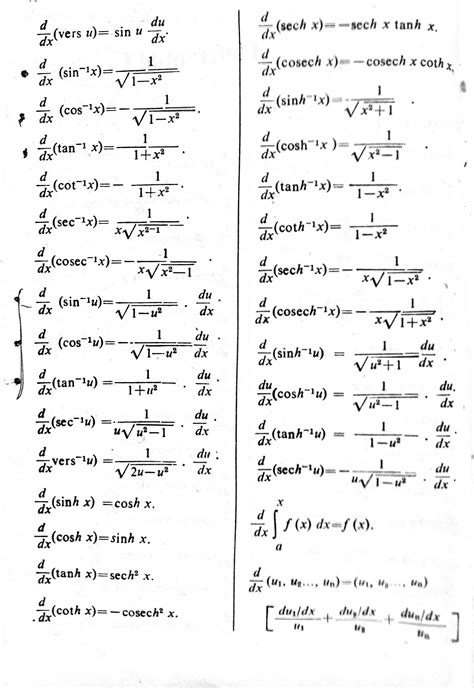 d/dx (vers u)= sin u du/dx.
d/dx (sin⁻¹x)= 1/√(1−x²)
d/dx (cos⁻¹x)=− 1/√(1−x²).
d/dx (tan⁻¹ x)= 1/(1+x²)
d/dx (cot⁻¹x)=− 1/(1+x²).
d/dx (sec⁻¹x)= 1/(x√(x²−1)).
d/dx (cosec⁻¹x)=− 1/(x√(x²−1))
d/dx (sin⁻¹u)= 1/√(1−u²) . du/dx
d/dx (cos⁻¹u)=− 1/√(1−u²) du/dx
d/dx (tan⁻¹u)= 1/(1+u²) . du/dx
d/dx (sec⁻¹u)= 1/(u√(u²−1)) . du/dx
d/dx vers⁻¹u)= 1/√(2u−u²) . du/dx
d/dx (sinh x) =cosh x.
d/dx (cosh x)=sinh x.
d/dx (tanh x)=sech² x.
d/dx (coth x)=− cosech² x.
d/dx (sech x)=−sech x tanh x.
d/dx (cosech x)=− cosech x coth x,
d/dx (sinh⁻¹x)= 1/√(x²+1)
d/dx (cosh⁻¹x )= 1/√(x²−1)
d/dx (tanh⁻¹x)= 1/(1−x²).
d/dx (coth⁻¹x)= 1/(1−x²)
d/dx (sech⁻¹x)=− 1/(x√(1−x²)).
d/dx (cosech⁻¹x)=− 1/(x√(1+x²))
d/dx (sinh⁻¹u) = 1/√(u²+1) du/dx
du/dx (cosh⁻¹u) = 1/√(u²−1) . du/dx.
d/dx (tanh⁻¹u) = 1/(1−u²) . du/dx
d/dx (sech⁻¹u)=− 1/(u√(1−u²)) . du/dx
d/dx ∫ₐˣ f (x) dx=f (x).
d/dx (u₁, u₂..., uₙ)=(u₁, u₂ ..., uₙ)
[ (du₁/dx)/u₁ + (du₂/dx)/u₂ + (duₙ/dx)/uₙ ]